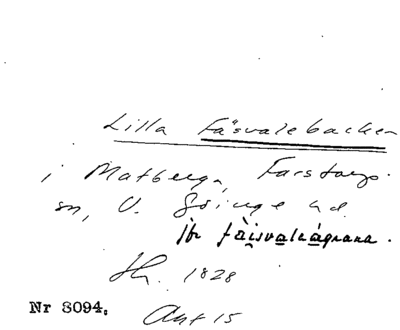 Lilla Fäsvalebacken
i Matberga, Farstorps
sn, V. Göinge hd.
jfr fäisvalaågrana.
Sk. 1828
Nr 8094.
Akt 15